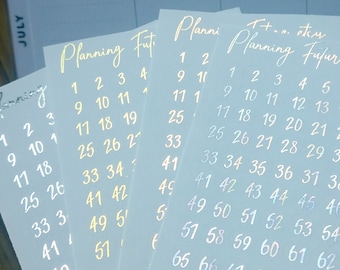 JULY
Planning
1 2 3
9 10 11
17 18
25 26
33 34
41 42
49
57
Planning Futu
1 2 3 4
9 10 11
17 18 19
25 26
33 34
41 42
49 50
57
Planning Fut
1 2 3
9 10 11
17 18 19
25 26 27
33 34
41 42
49
57
Planning Futur
1 2 3 4 5
9 10 11 12 13
17 18 19 20 21
25 26 27 28 29
33 34 35 36 37
41 42 43 44 45
49 50 51 52 53
57 58 59 60 61 62
65 66 67 68 69